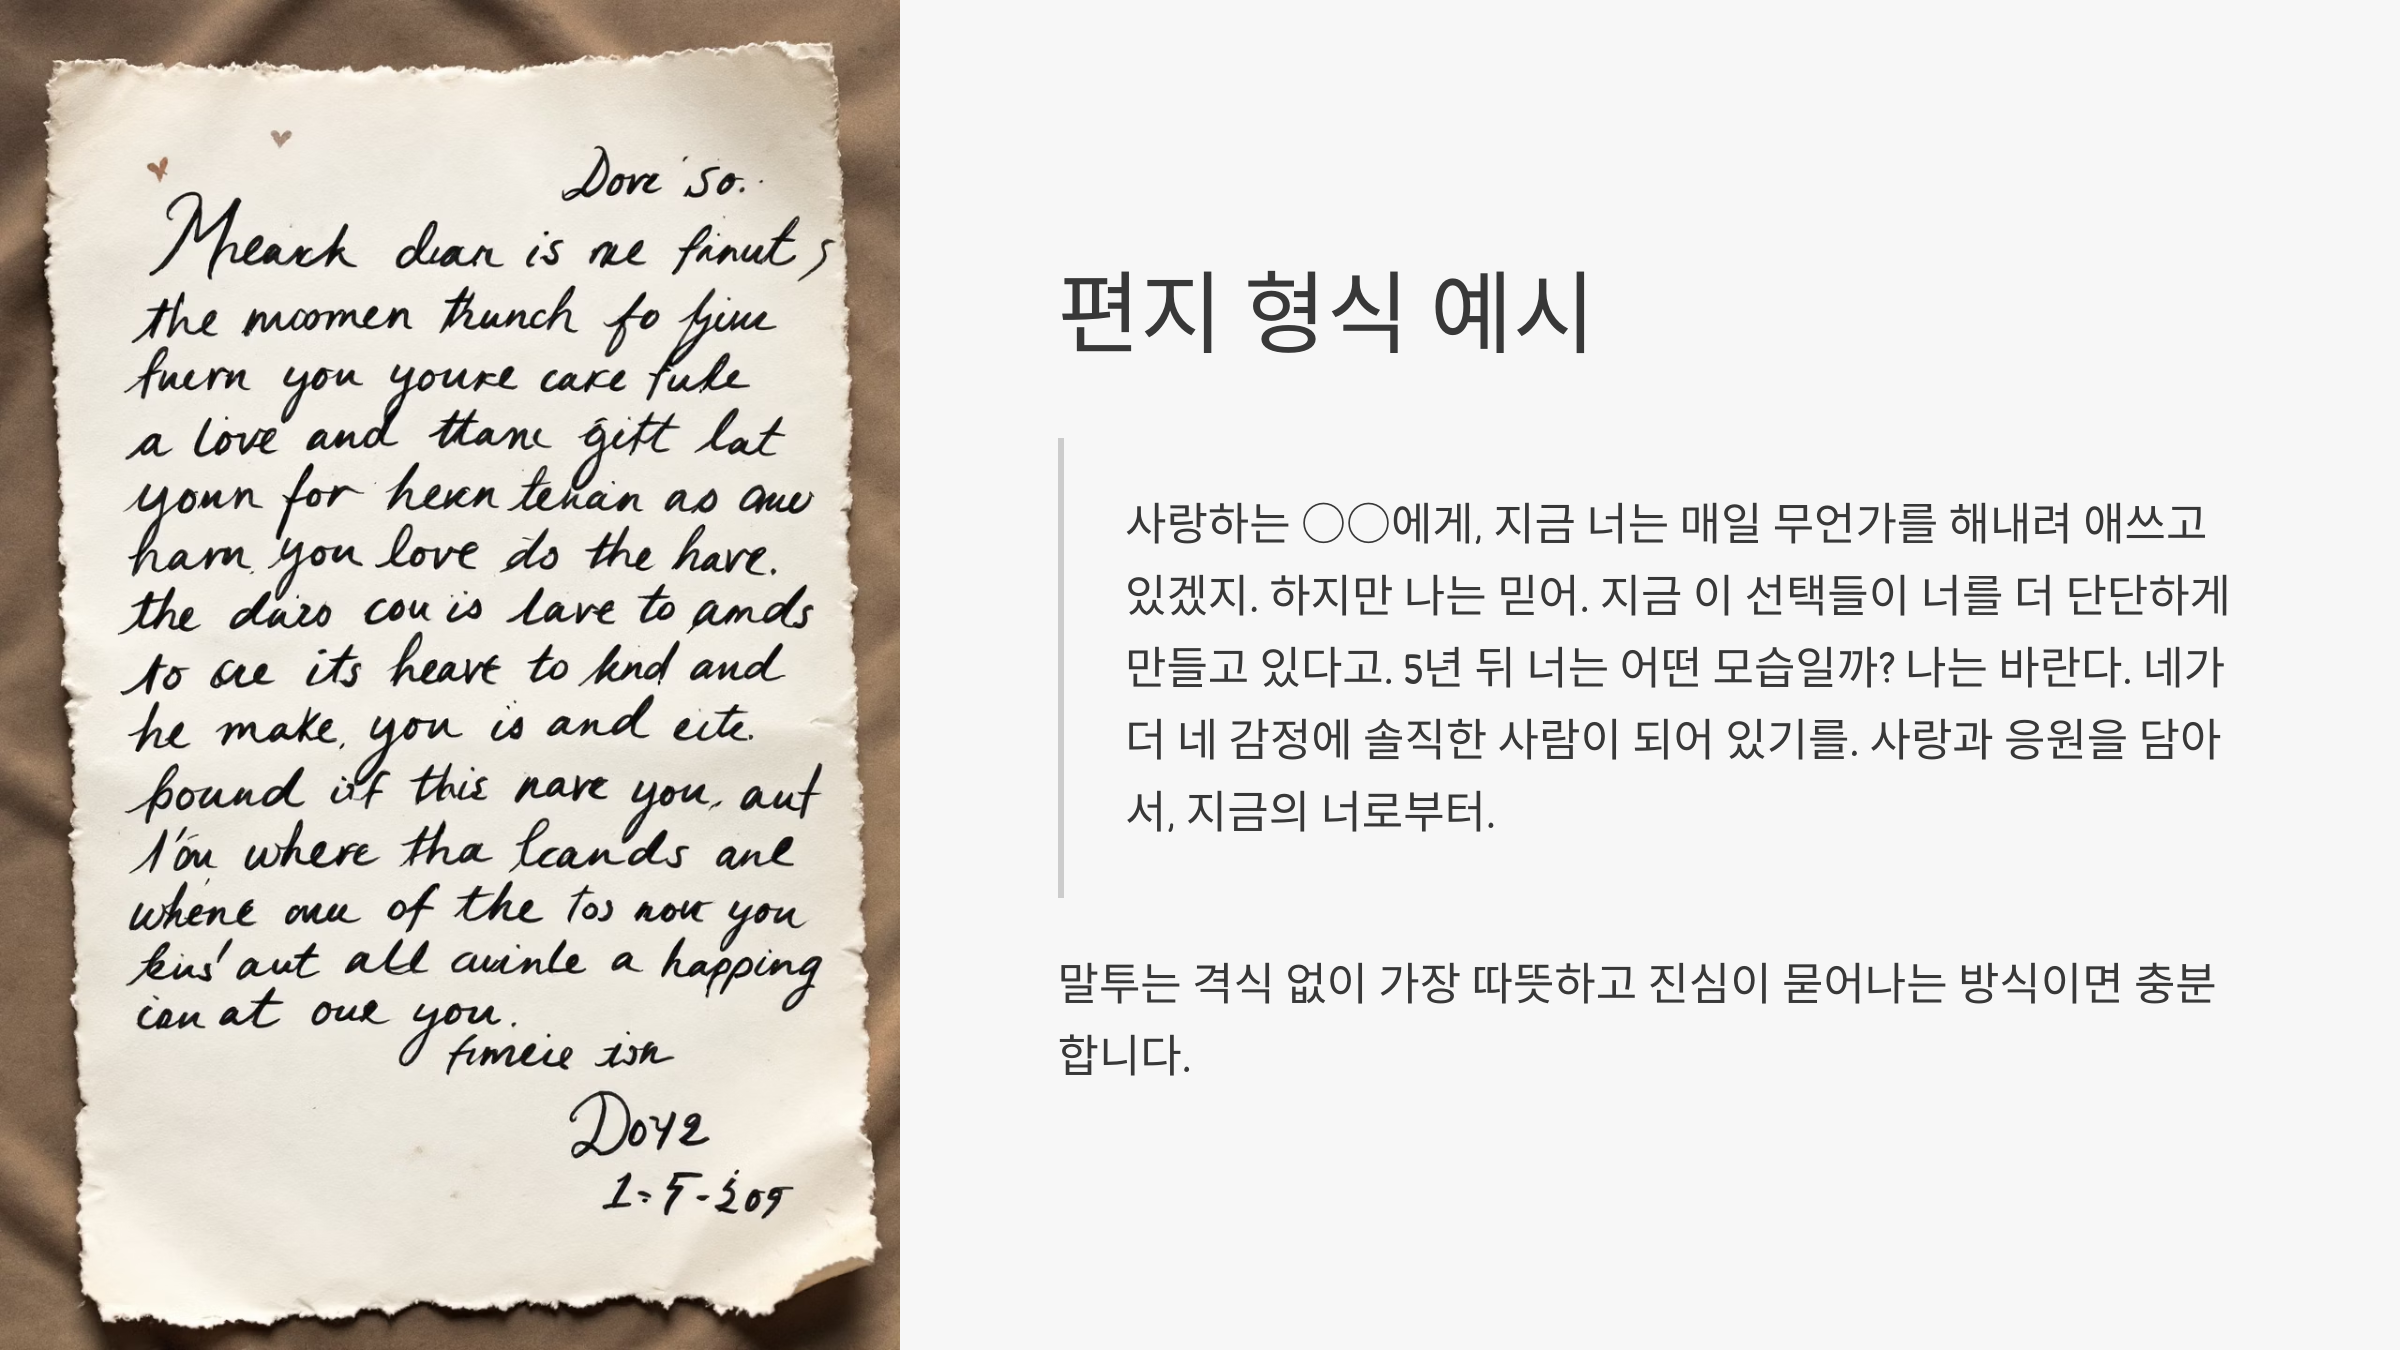 Dove so.
Mheark dear is me finut,
the mcomen thunch fo fjiue
fuern you youre care fule
a love and ttane gitt lat
youn for hern tenain as
harn, you love do the have.
the dairo cou is lave to amds
to are its heave to knd and
he make, you is and eite.
bound iif this nave you, aut
where tha lcands ane
whene of the Tos nour you
kius' aut all a happing
ian at oue you.
fimeie isn
Doy2
1-5-209
편지 형식 예시
사랑하는 ○○에게, 지금 너는 매일 무언가를 해내려 애쓰고
있겠지. 하지만 나는 믿어. 지금 이 선택들이 너를 더 단단하게
만들고 있다고. 5년 뒤 너는 어떤 모습일까? 나는 바란다. 네가
더 네 감정에 솔직한 사람이 되어 있기를. 사랑과 응원을 담아
서, 지금의 너로부터.
말투는 격식 없이 가장 따뜻하고 진심이 묻어나는 방식이면 충분
합니다.